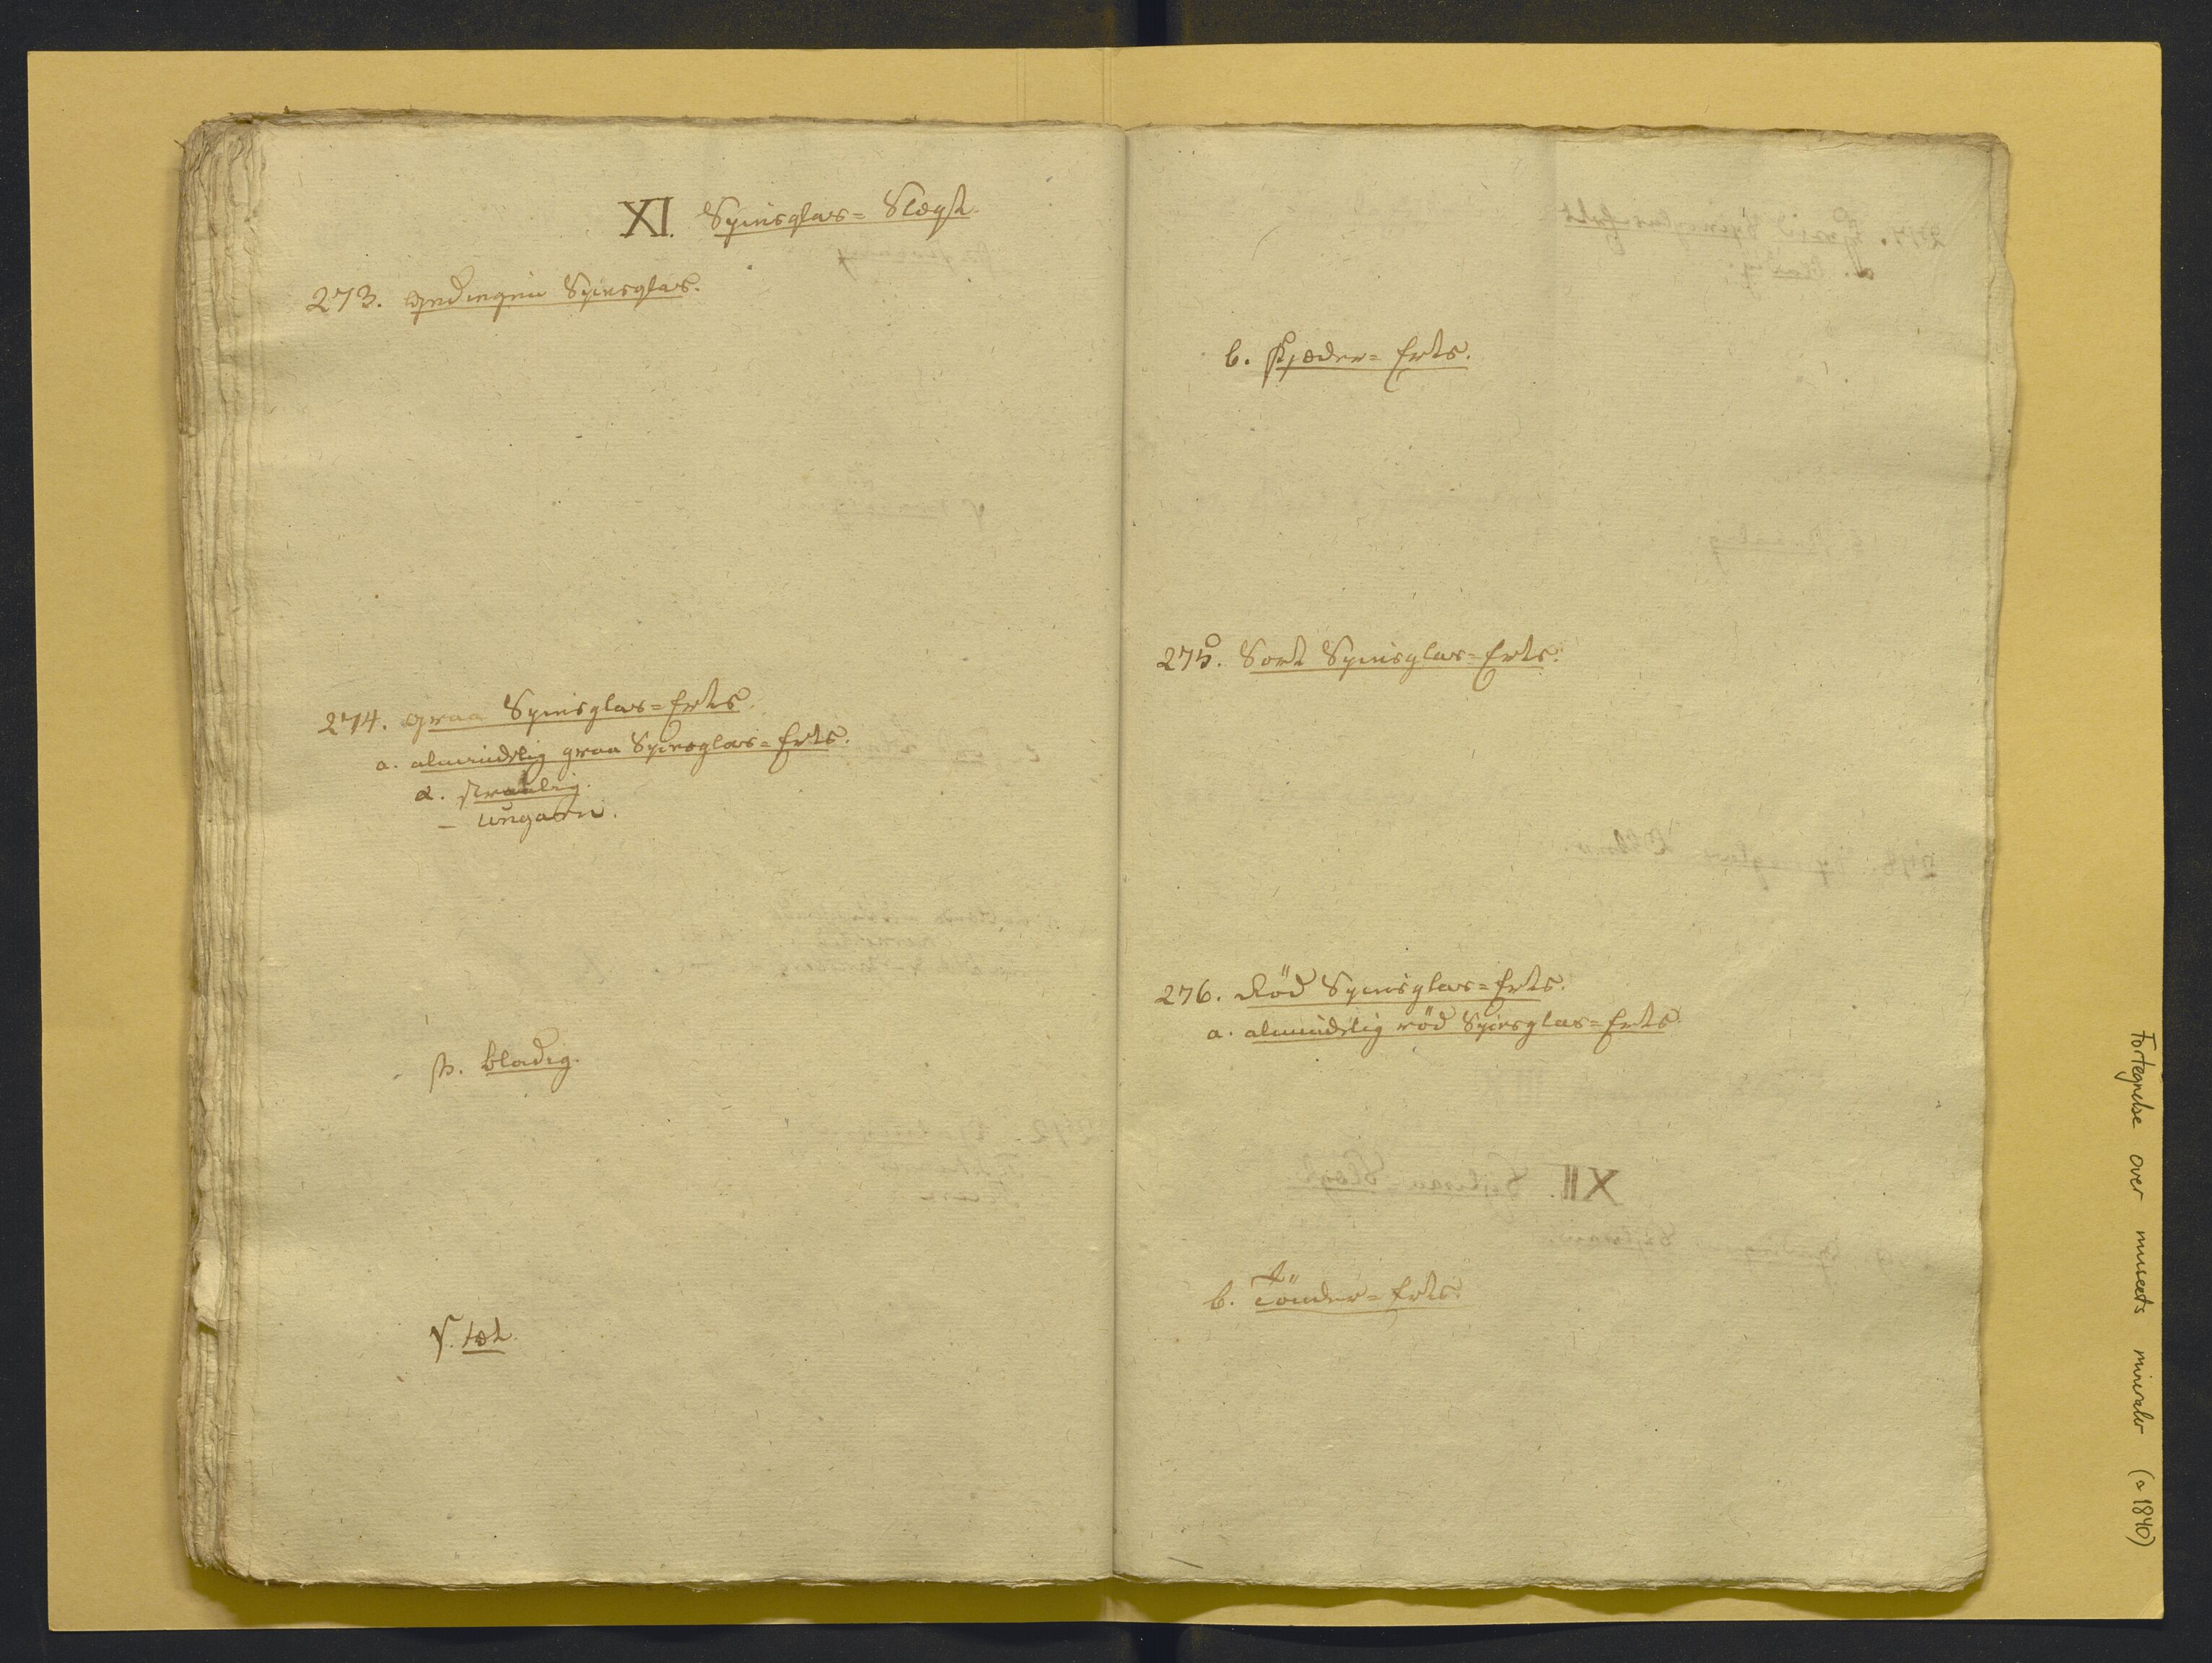 XI. Spiesglas= Slægt
273. Gediegen Spiesglas.
274. Graa Spiesglas=Erts.
a. almindelig graa Spiesglas=Erts.
α. straalig.
– Ungarn.
β. bladig.
γ. tæt.
b. Fjæder= Erts.
275. Sort Spiesglas=Erts.
276. Röd Spiesglas=Erts.
a. almindelig röd Spiesglas=Erts
b. Tönder=Erts.
Fortegnelse over museets mineraler (ca 1840)